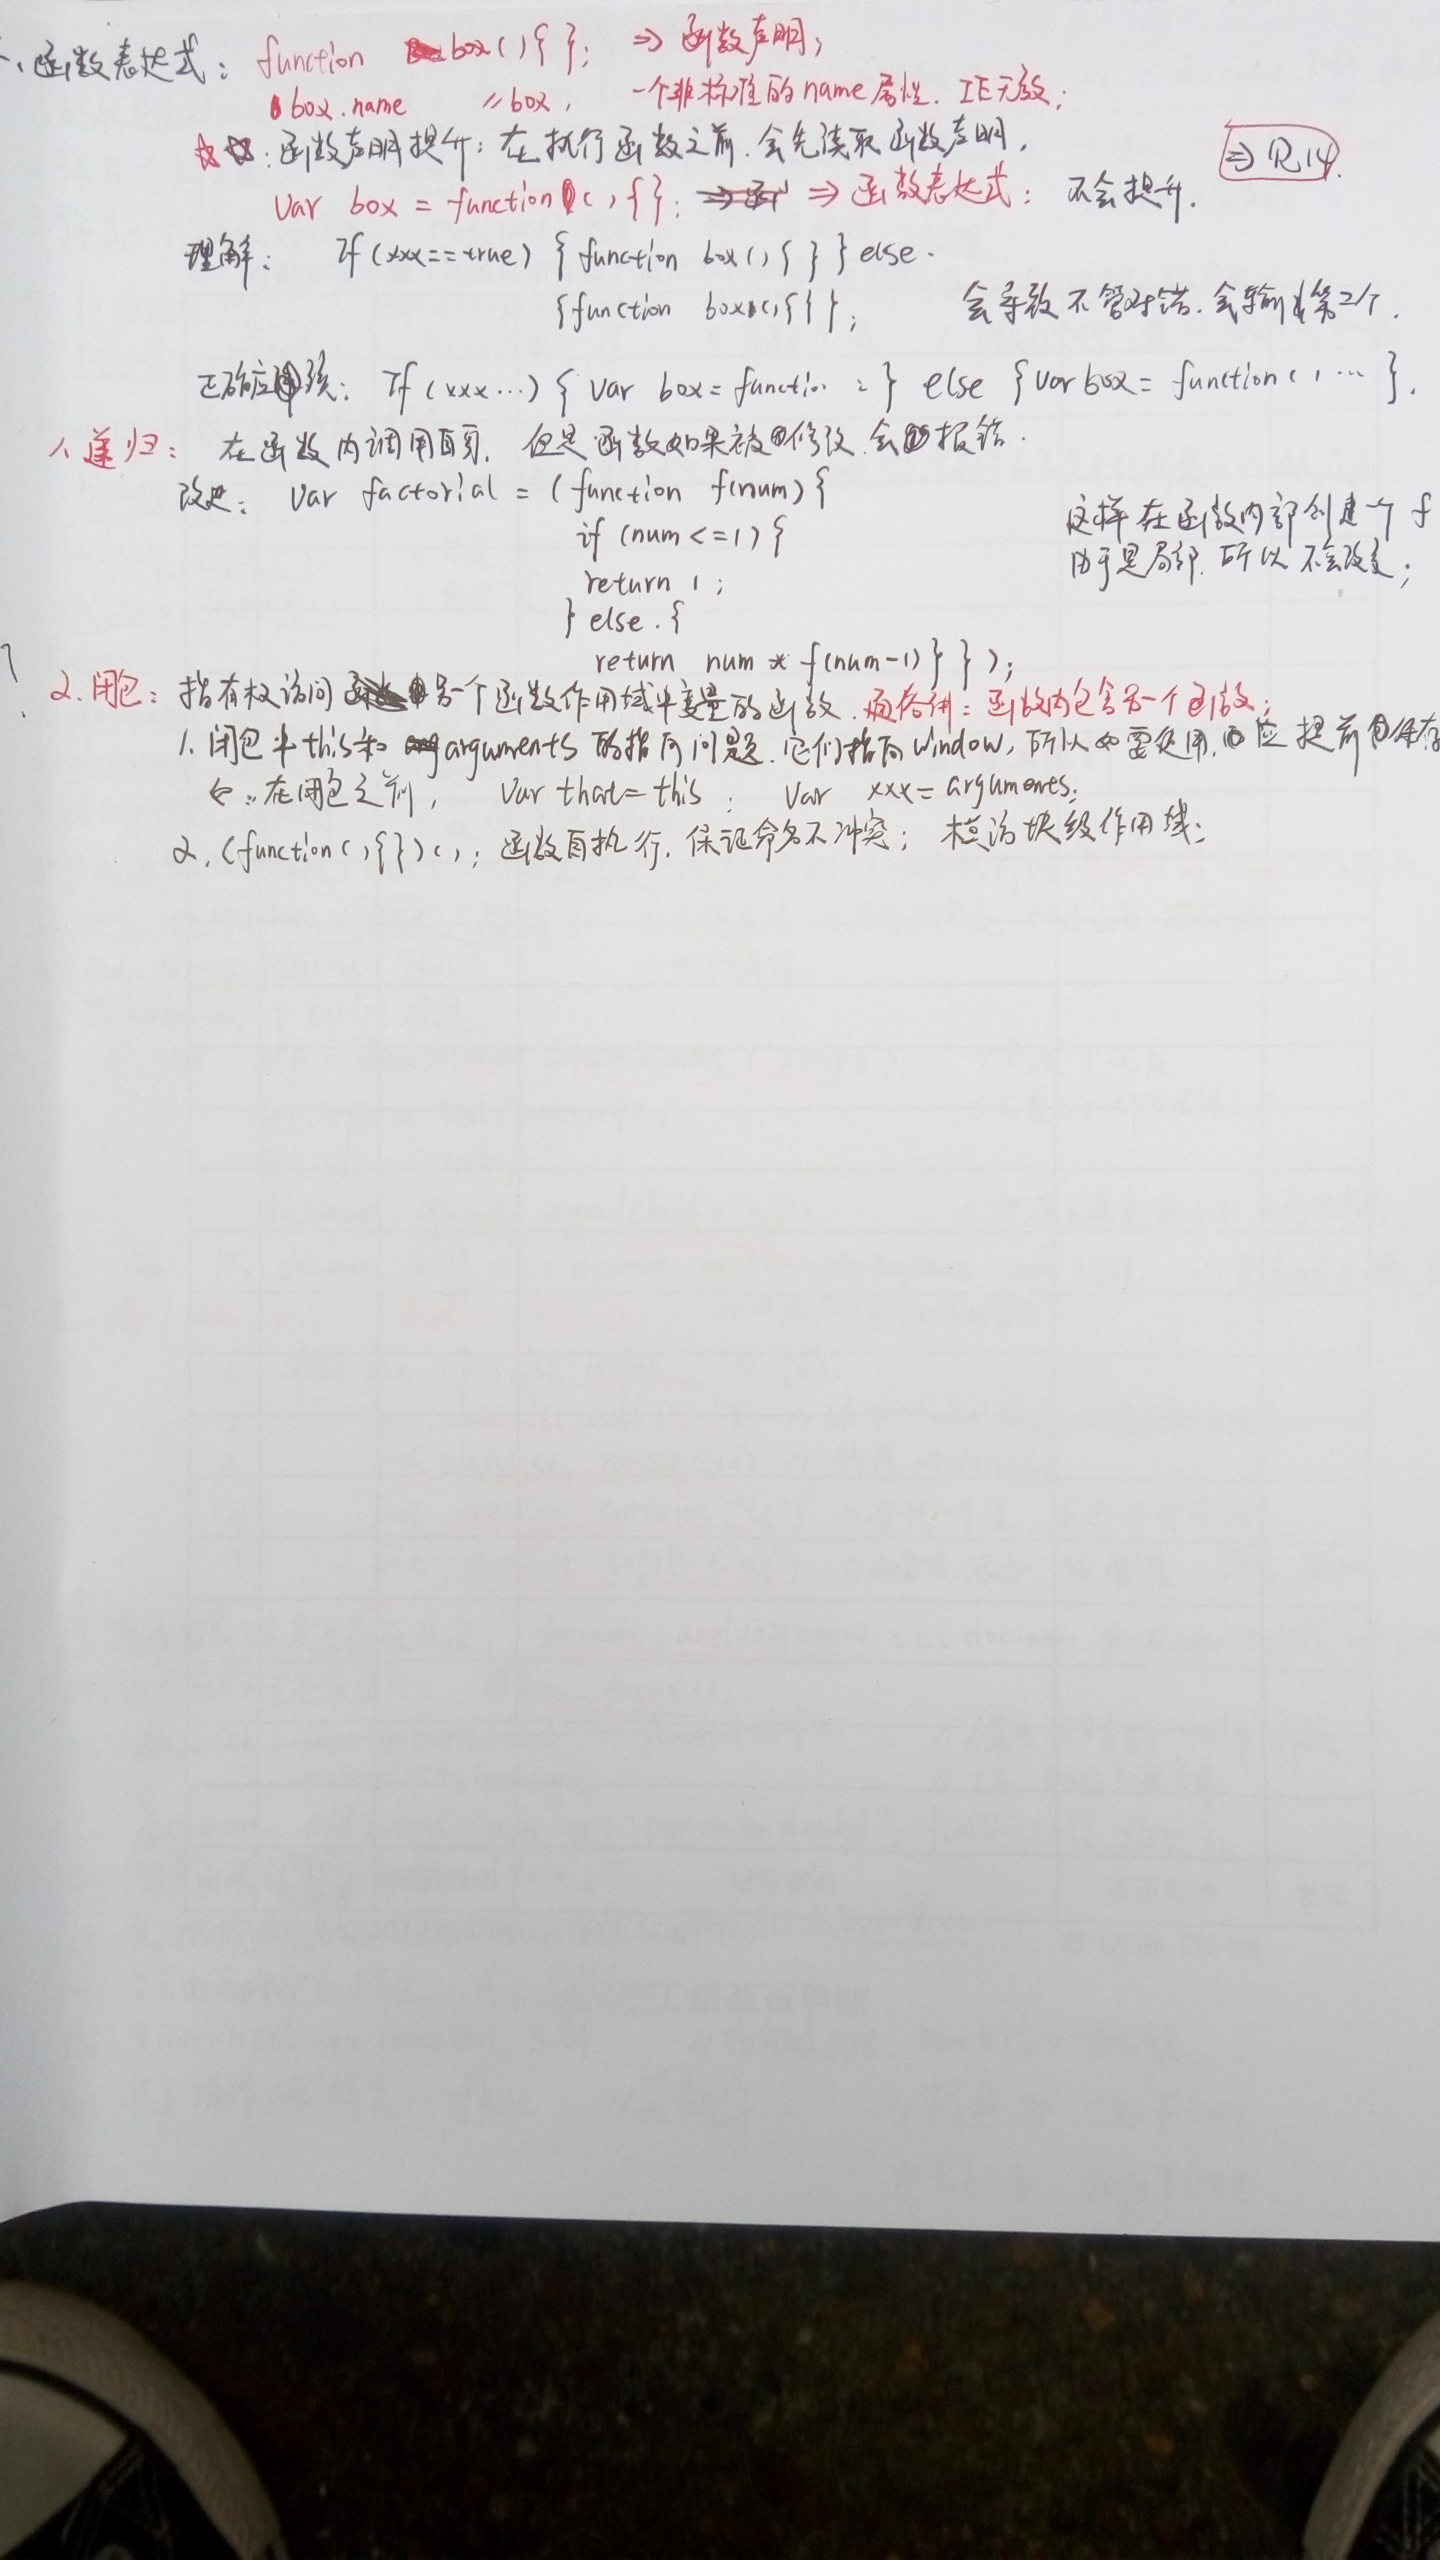 、函数表达式: function box(){ }; ⇒ 函数声明;
box.name //box, 一个非标准的name属性. IE无效;
☆☆: 函数声明提升: 在执行函数之前. 会先读取函数声明.
⇒ P.14.
var box = function(){}; ⇒ 函数表达式: 不会提升.
理解: If (xxx==true) { function box(){ } } else.
{function box(){}}; 会导致不管对错. 会输出第二个.
正确应该: If (xxx...) { var box = function : } else {var box = function( , ... }.
1、递归: 在函数内调用自身. 但是函数如果被修改 会报错.
改进: var factorial = (function f(num){
if (num<=1){
return 1;
} else.{
return num * f(num-1)} });
这样在函数内部创建一个 f
由于是局部. 所以不会改变;
2. 闭包: 指有权访问另一个函数作用域中变量的函数. 通俗讲: 函数内包含另一个函数;
1. 闭包中this和arguments的指向问题. 它们指向window, 所以如需使用. 应提前保存
在闭包之前, var that=this; var xxx=arguments;
2. (function(){})(); 函数自执行. 保证命名不冲突; 模仿块级作用域;